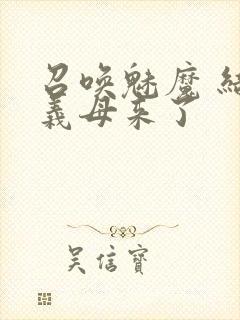 召唤魅魔 结
義母来了
吴信寶